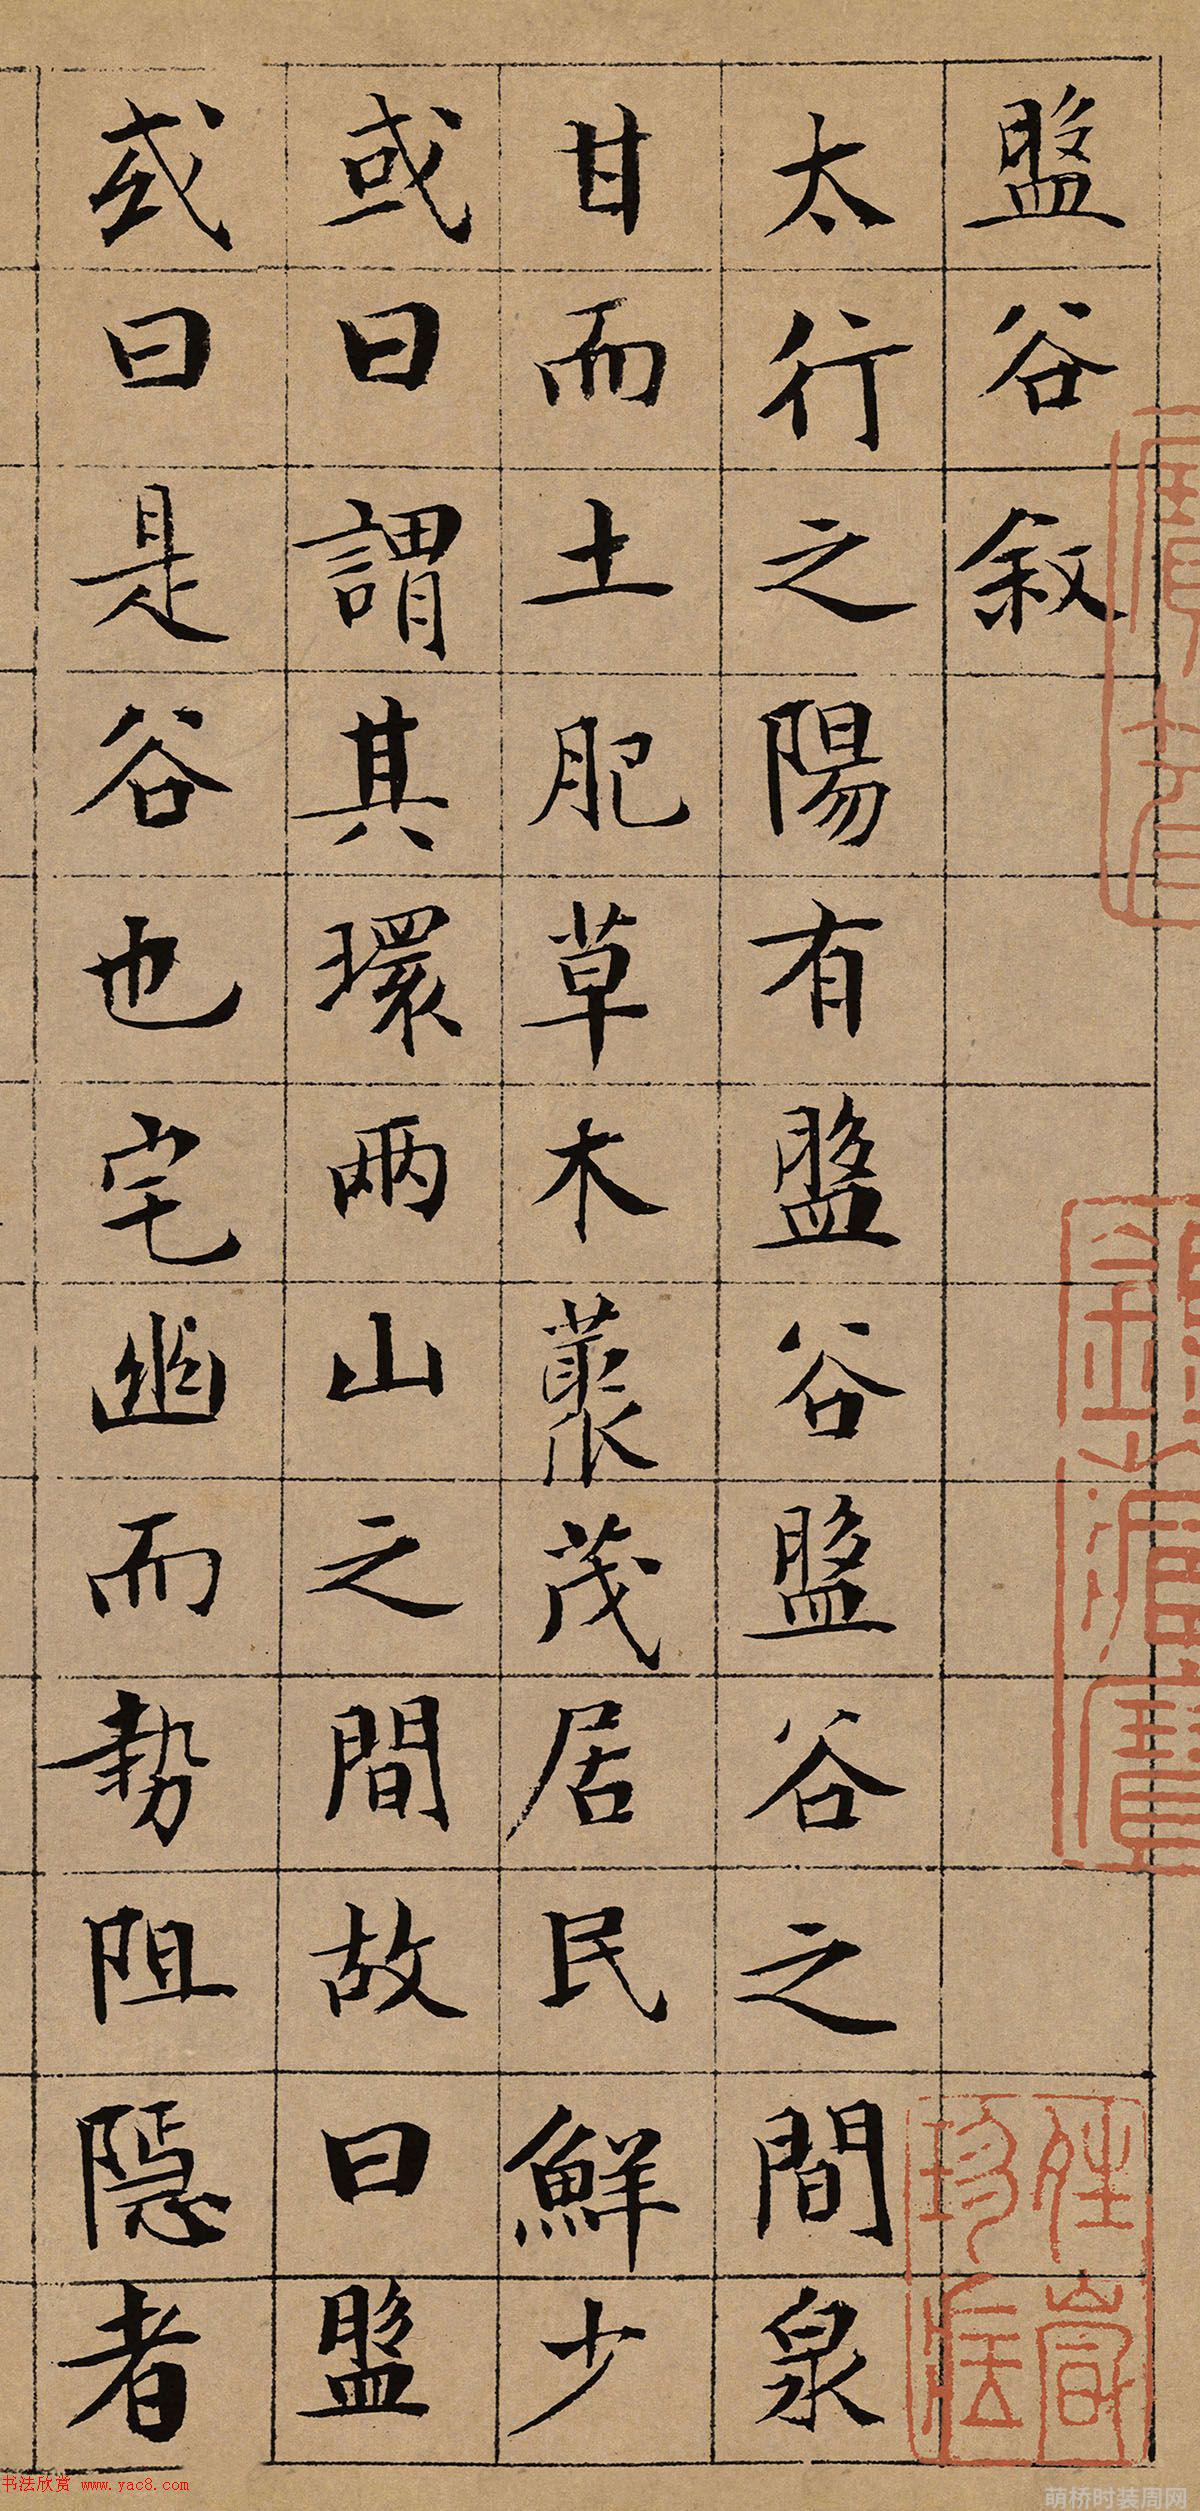 盤谷敘
太行之陽有盤谷盤谷之間泉
甘而土肥草木叢茂居民鮮少
或曰謂其環兩山之間故曰盤
或曰是谷也宅幽而勢阻隱者
书法欣赏 www.yac8.com
萌桥时装周网